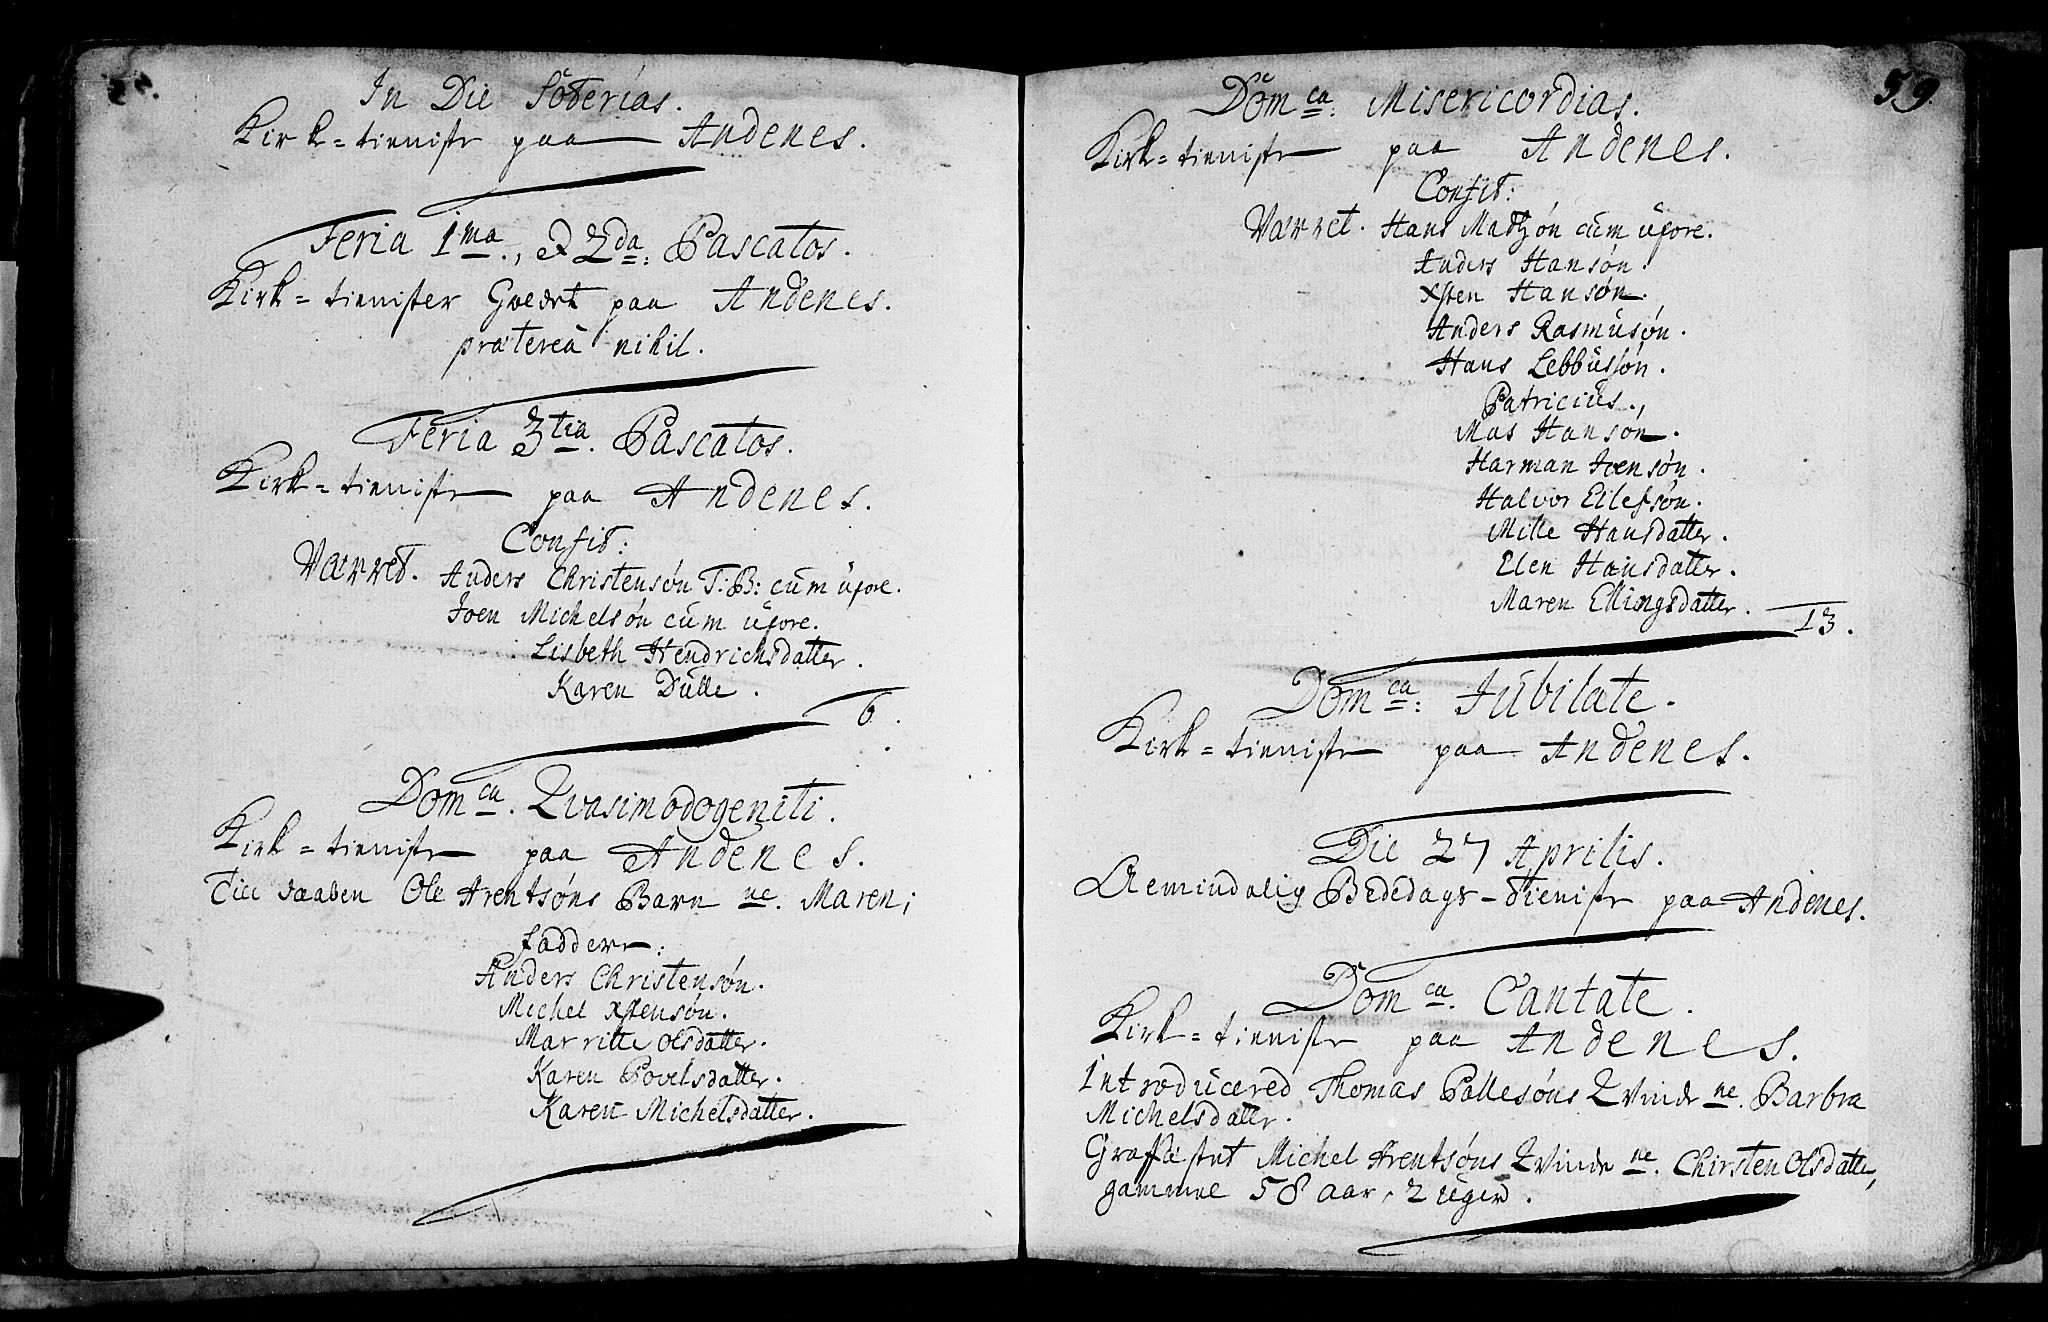 In Die Soterias.
Kirk=tieniste paa Andenes.
Feria 1ma., et 2da: Pascatos.
Kirk=tienister Giordt paa Andenes.
præterea nihil.
Feria 3tia. Pascatos.
Kirk=tieniste paa Andenes.
Confit:
Værret. Anders Christensøn T:B: cum uxore.
Joen Michelsøn cum uxore.
Lisbeth Hendrichsdatter.
Karen Dulle.
6.
Domca. Qvasimodogeniti.
Kirk=tieniste paa Andenes.
Till daaben Ole Arentsøns Barn ne. Maren;
faddere:
Anders Christensøn.
Michel Xstensøn.
Marritte Olsdatter.
Karen Povelsdatter.
Karen Michelsdatter.
59.
Domca: Misericordias.
Kirk=tieniste paa Andenes.
Confit:
Værret. Hans Matzøn cum uxore.
Anders Hansøn.
Xsten Hansøn.
Anders Rasmusøn.
Hans Lebbussøn.
Patricius.,
Mas Hansøn.
Harman Joensøn.
Halvor Eilefsøn.
Mille Hansdatter.
Elen Hansdatter.
Maren Ellingsdatter.
13.
Domca: Jubilate.
Kirk=tieniste paa Andenes.
Die 27 Aprilis.
Almindelig Bededags-tieniste paa Andenes.
Domca. Cantate.
Kirk=tieniste paa Andenes.
Introducered Thomas Pallesøns Qvinde ne. Barbra
Michelsdatter.
Graffæstet Michel Arentsøns Qvinde ne. Chirsten Olsdatter,
gammel 58 aar, 2 uger.